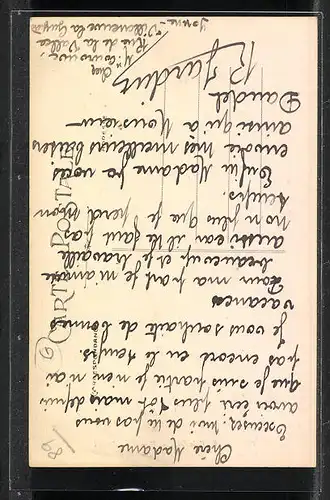 Chère Madame
Excusez moi de ne pas vous
avoir écrit plus tôt mais depuis
que je suis partie je n'en ai
pas encore eu le temps
je vous souhaite de bonnes
vacances
Pour ma part je m'amuse
beaucoup et je travaille
aussi car il ne faut pas
non plus que je perd mon
temps.
Enfin Madame je vous
envoie mes meilleurs baisers
ainsi qu'à Monsieur
Daudet
R Jardin
chez
Rue de la Vallée
Villeneuve la Guyard
Yonne
CARTE POSTALE
6
89